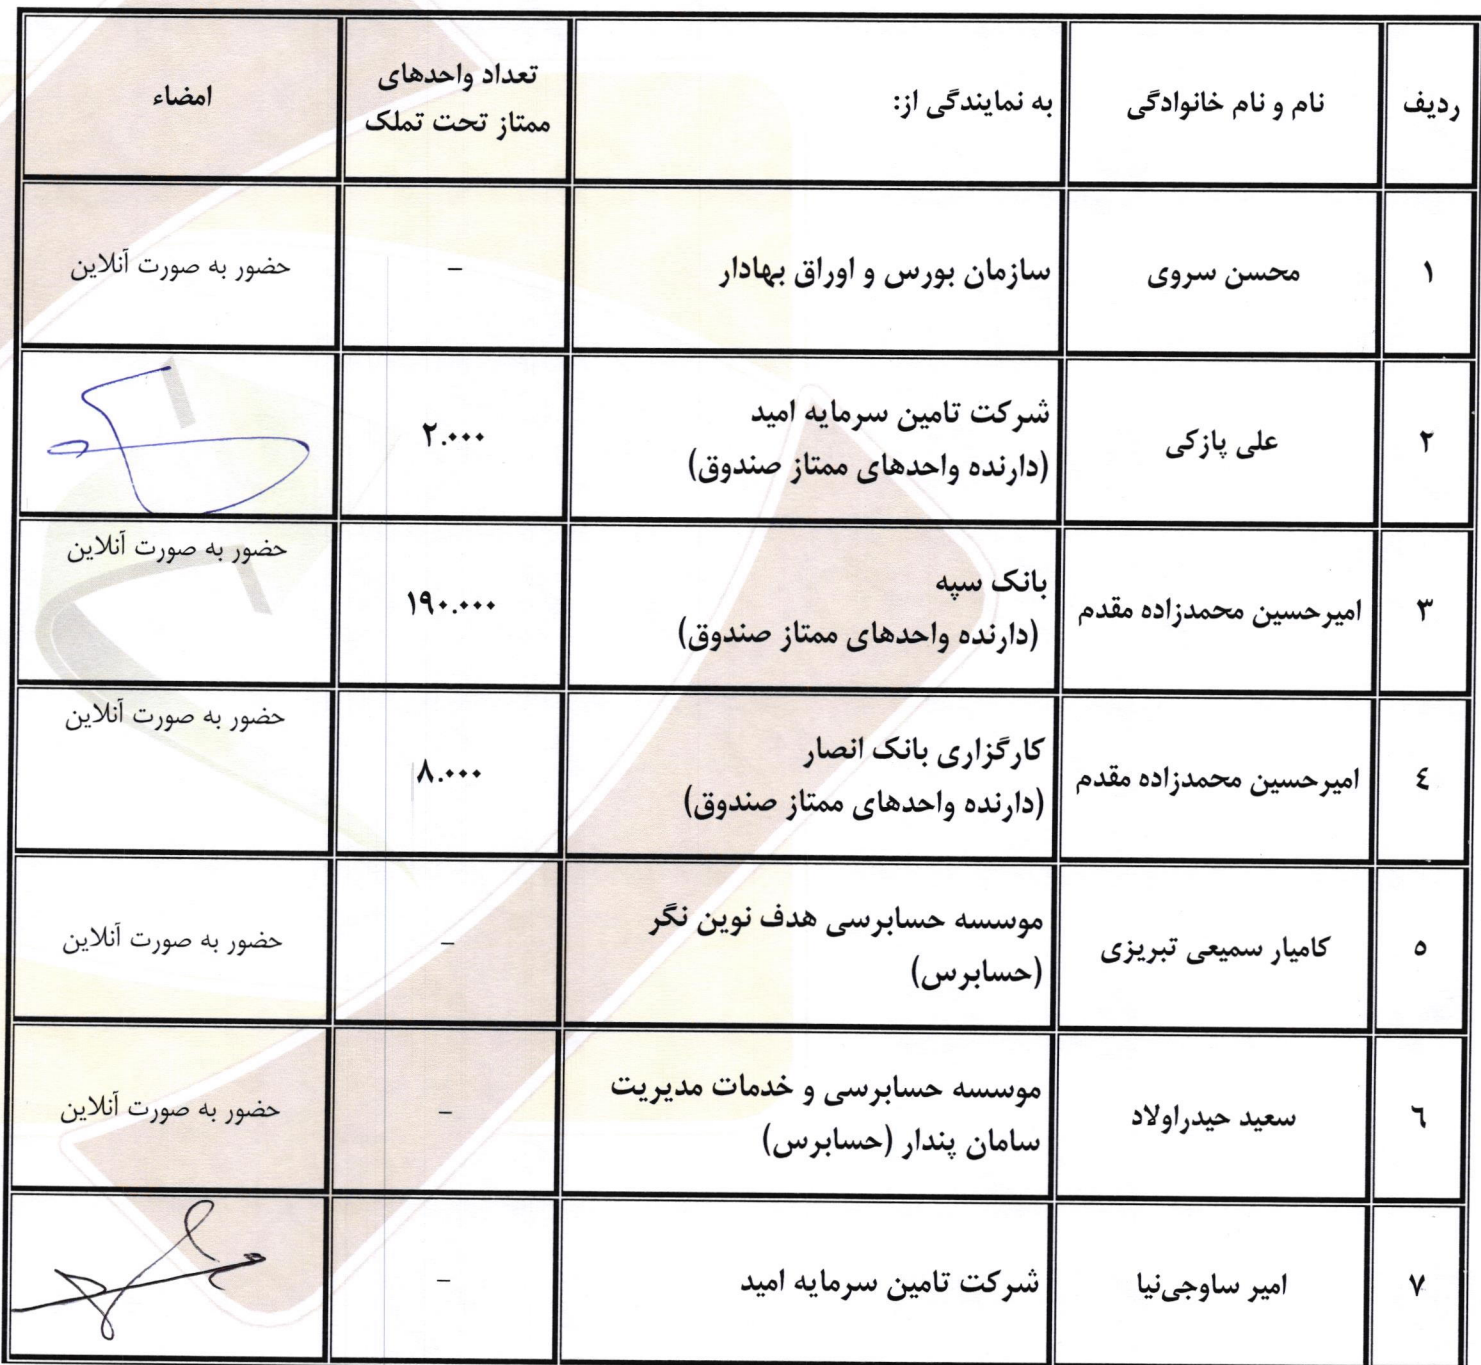 ردیف
نام و نام خانوادگی
به نمایندگی از:
تعداد واحدهای
ممتاز تحت تملک
امضاء
۱
محسن سروی
سازمان بورس و اوراق بهادار
–
حضور به صورت آنلاین
۲
علی پازکی
شرکت تامین سرمایه امید
(دارنده واحدهای ممتاز صندوق)
۲.۰۰۰
۳
امیرحسین محمدزاده مقدم
بانک سپه
(دارنده واحدهای ممتاز صندوق)
۱۹۰.۰۰۰
حضور به صورت آنلاین
٤
امیرحسین محمدزاده مقدم
کارگزاری بانک انصار
(دارنده واحدهای ممتاز صندوق)
۸.۰۰۰
حضور به صورت آنلاین
٥
کامیار سمیعی تبریزی
موسسه حسابرسی هدف نوین نگر
(حسابرس)
–
حضور به صورت آنلاین
٦
سعید حیدراولاد
موسسه حسابرسی و خدمات مدیریت
سامان پندار (حسابرس)
–
حضور به صورت آنلاین
۷
امیر ساوجی‌نیا
شرکت تامین سرمایه امید
–